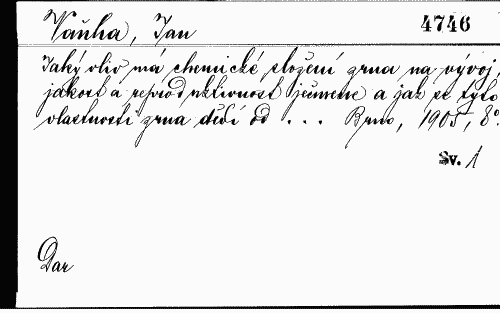 Vaňha, Jan 4746
Jaký vliv má chemické složení zrna na vývoj,
jakost a reproduktivnost ječmene a jak se tyto
vlastnosti zrna dědí od ... Brno, 1905, 8°.
Sv. 1
Dar